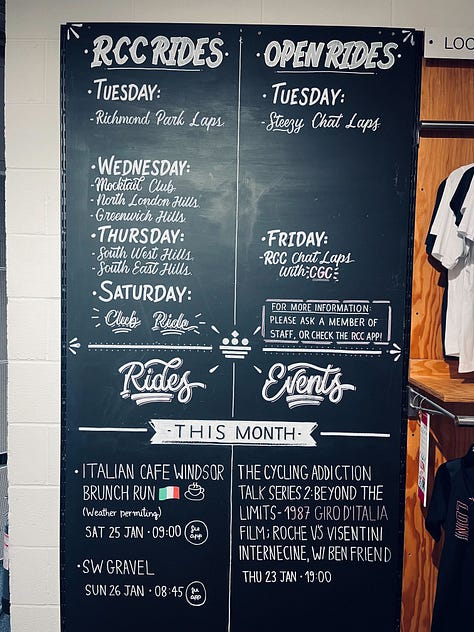 RCC RIDES
· TUESDAY:
- Richmond Park Laps.
· WEDNESDAY:
- Mocktail Club
- North London Hills.
- Greenwich Hills.
· THURSDAY:
- South West Hills.
- South East Hills.
· SATURDAY:
Club Ride
· OPEN RIDES ·
· TUESDAY:
- Steezy Chat Laps
· FRIDAY:
- RCC Chat Laps
With: CGC
FOR MORE INFORMATION:
PLEASE ASK A MEMBER OF
STAFF, OR CHECK THE RCC APP!
Rides
Events
· THIS MONTH ·
· ITALIAN CAFE WINDSOR
BRUNCH RUN
(Weather permiting)
SAT 25 JAN · 09:00
· SW GRAVEL
SUN 26 JAN · 08:45
THE CYCLING ADDICTION
TALK SERIES 2: BEYOND THE
LIMITS - 1987 GIRO D'ITALIA
FILM; ROCHE VS VISENTINI
INTERNECINE, W/ BEN FRIEND
THU 23 JAN · 19:00
· LOC